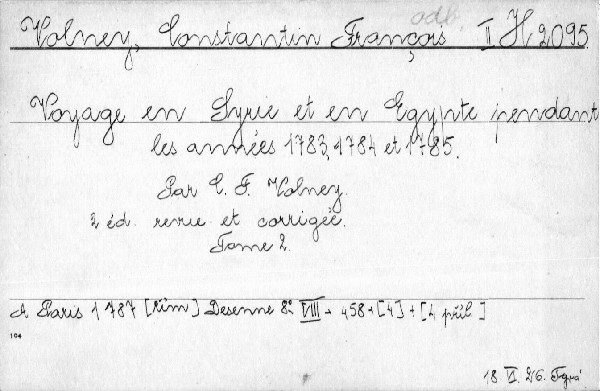 odb.
Volney, Constantin François. II H 2095.
Voyage en Syrie et en Egypte pendant
les années 1783, 1784 et 1785.
Par C. F. Volney.
2 éd. revue et corrigée.
Tome 2.
A Paris 1787 [řím] Desenne 8° VIII + 458 + [4] + [4 příl]
104
18 VI. 26.